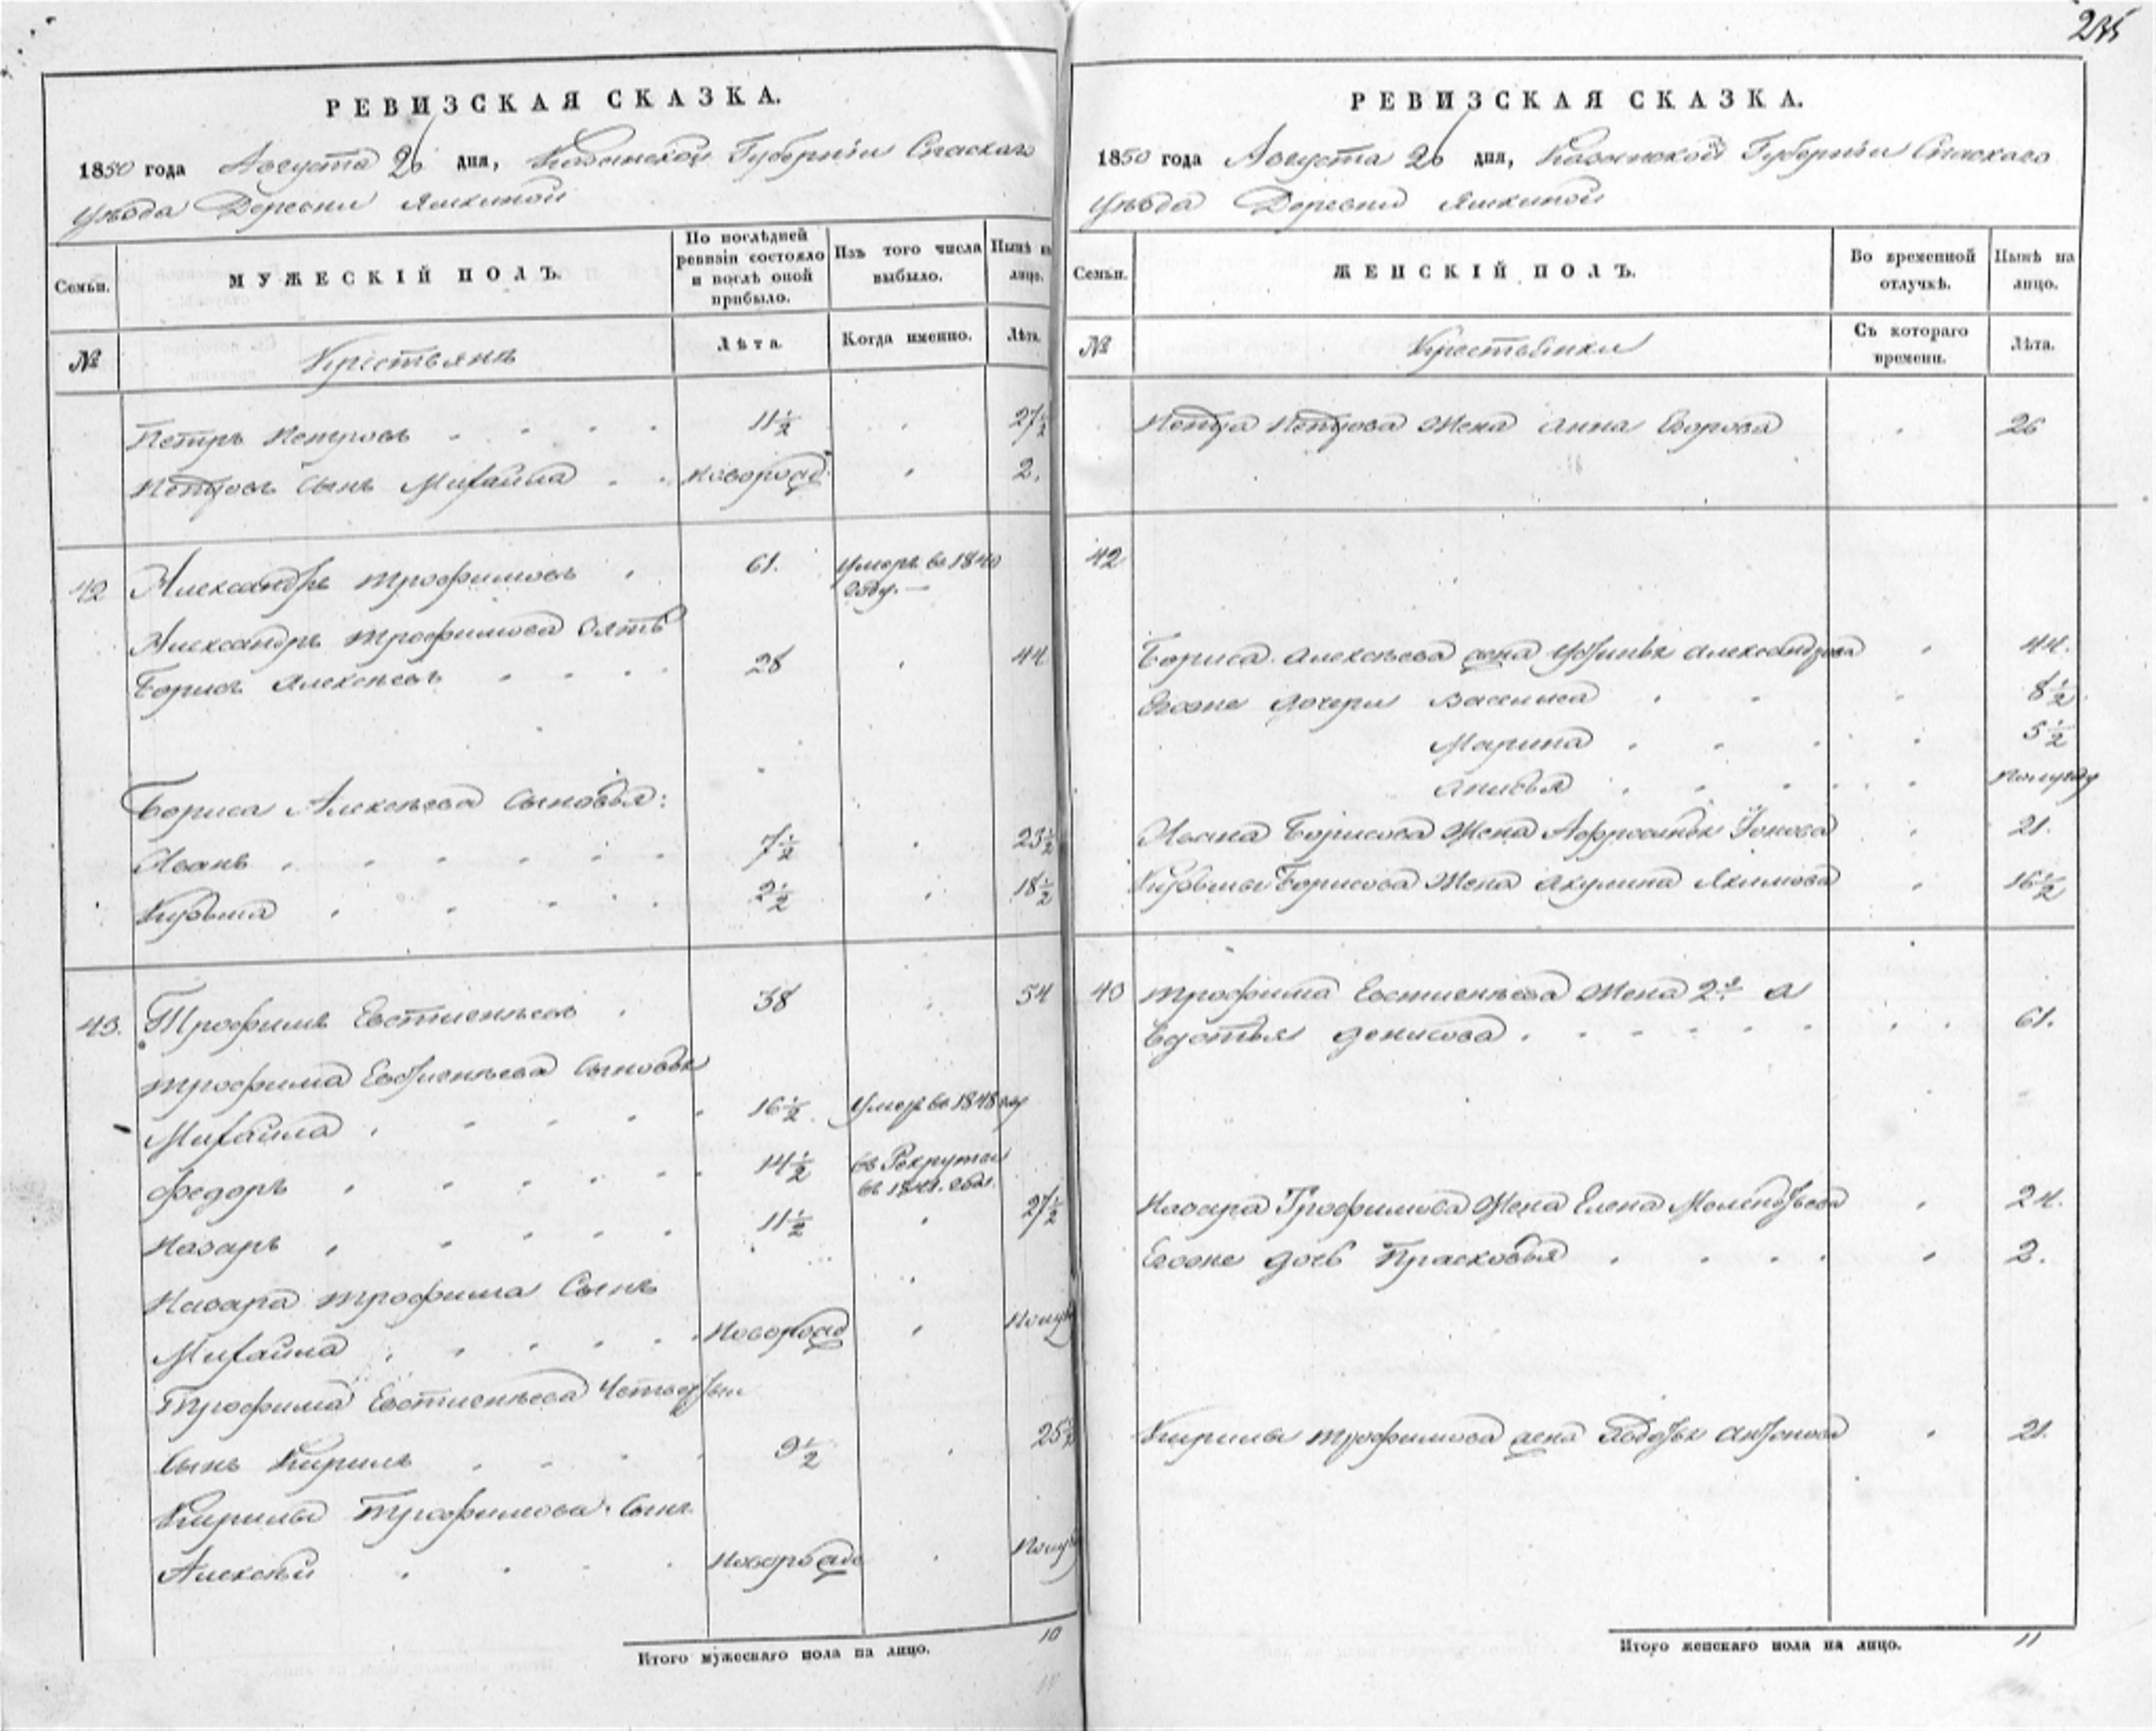 235
РЕВИЗСКАЯ СКАЗКА.
1850 года Августа 26 дня, Казанской Губерніи Спаскаго
уѣзда Деревни Ямкиной
Семьи.
МУЖЕСКІЙ ПОЛЪ.
По послѣдней ревизіи состояло и послѣ оной прибыло.
Изъ того числа выбыло.
Нынѣ на лицо.
№
Крестьянъ
Лѣта.
Когда именно.
Лѣта.
Петръ Петровъ 11½ 27½
Петровъ Сынъ Михайла новорожд. 2.
42 Александръ Трофимовъ 61. умеръ въ 1840
году.—
Александръ Трофимова Зять
Борисъ Алексѣевъ 28 44
Бориса Алексѣева Сыновья:
Иванъ 7½ 23½
Кузьма 2½ 18½
43. Трофимъ Евстигнѣевъ 38 54
Трофима Евстигнѣева Сыновья
Михайла 16½ умеръ въ 1848 году
Федоръ 14½ въ Рекруты
въ годъ.
Назаръ 11½ 27½
Назара Трофима Сынъ
Михайла Новорожд Полуг
Трофима Евстигнѣева Четвертый
Сынъ Кирилъ 9½ 25½
Кирилы Трофимова Сынъ
Алексѣй Новорожд Полуг
Итого мужескаго пола на лицо. 10
РЕВИЗСКАЯ СКАЗКА.
1850 года Августа 26 дня, Казанской Губерніи Спаскаго
уѣзда Деревни Ямкиной
Семьи.
ЖЕНСКІЙ ПОЛЪ.
Во временной отлучкѣ.
Нынѣ на лицо.
№
Крестьянки
Съ котораго времени.
Лѣта.
Петра Петрова Жена Анна Егорова 26
42
Бориса Алексѣева жена Устинья Александрова 44.
Егоже дочери Василиса 8½
Марина 5½
Анисья полугоду
Ивана Борисова Жена Афросинья Іонова 21.
Кузьмы Борисова Жена Акулина Якимова 16½
43 Трофима Евстигнѣева Жена 2я
Евдотья Денисова 61.
Назара Трофимова Жена Елена Мелентьева 24.
Егоже дочь Прасковья 2.
Кирилы Трофимова жена Авдотья Антонова 21.
Итого женскаго пола на лицо. 11